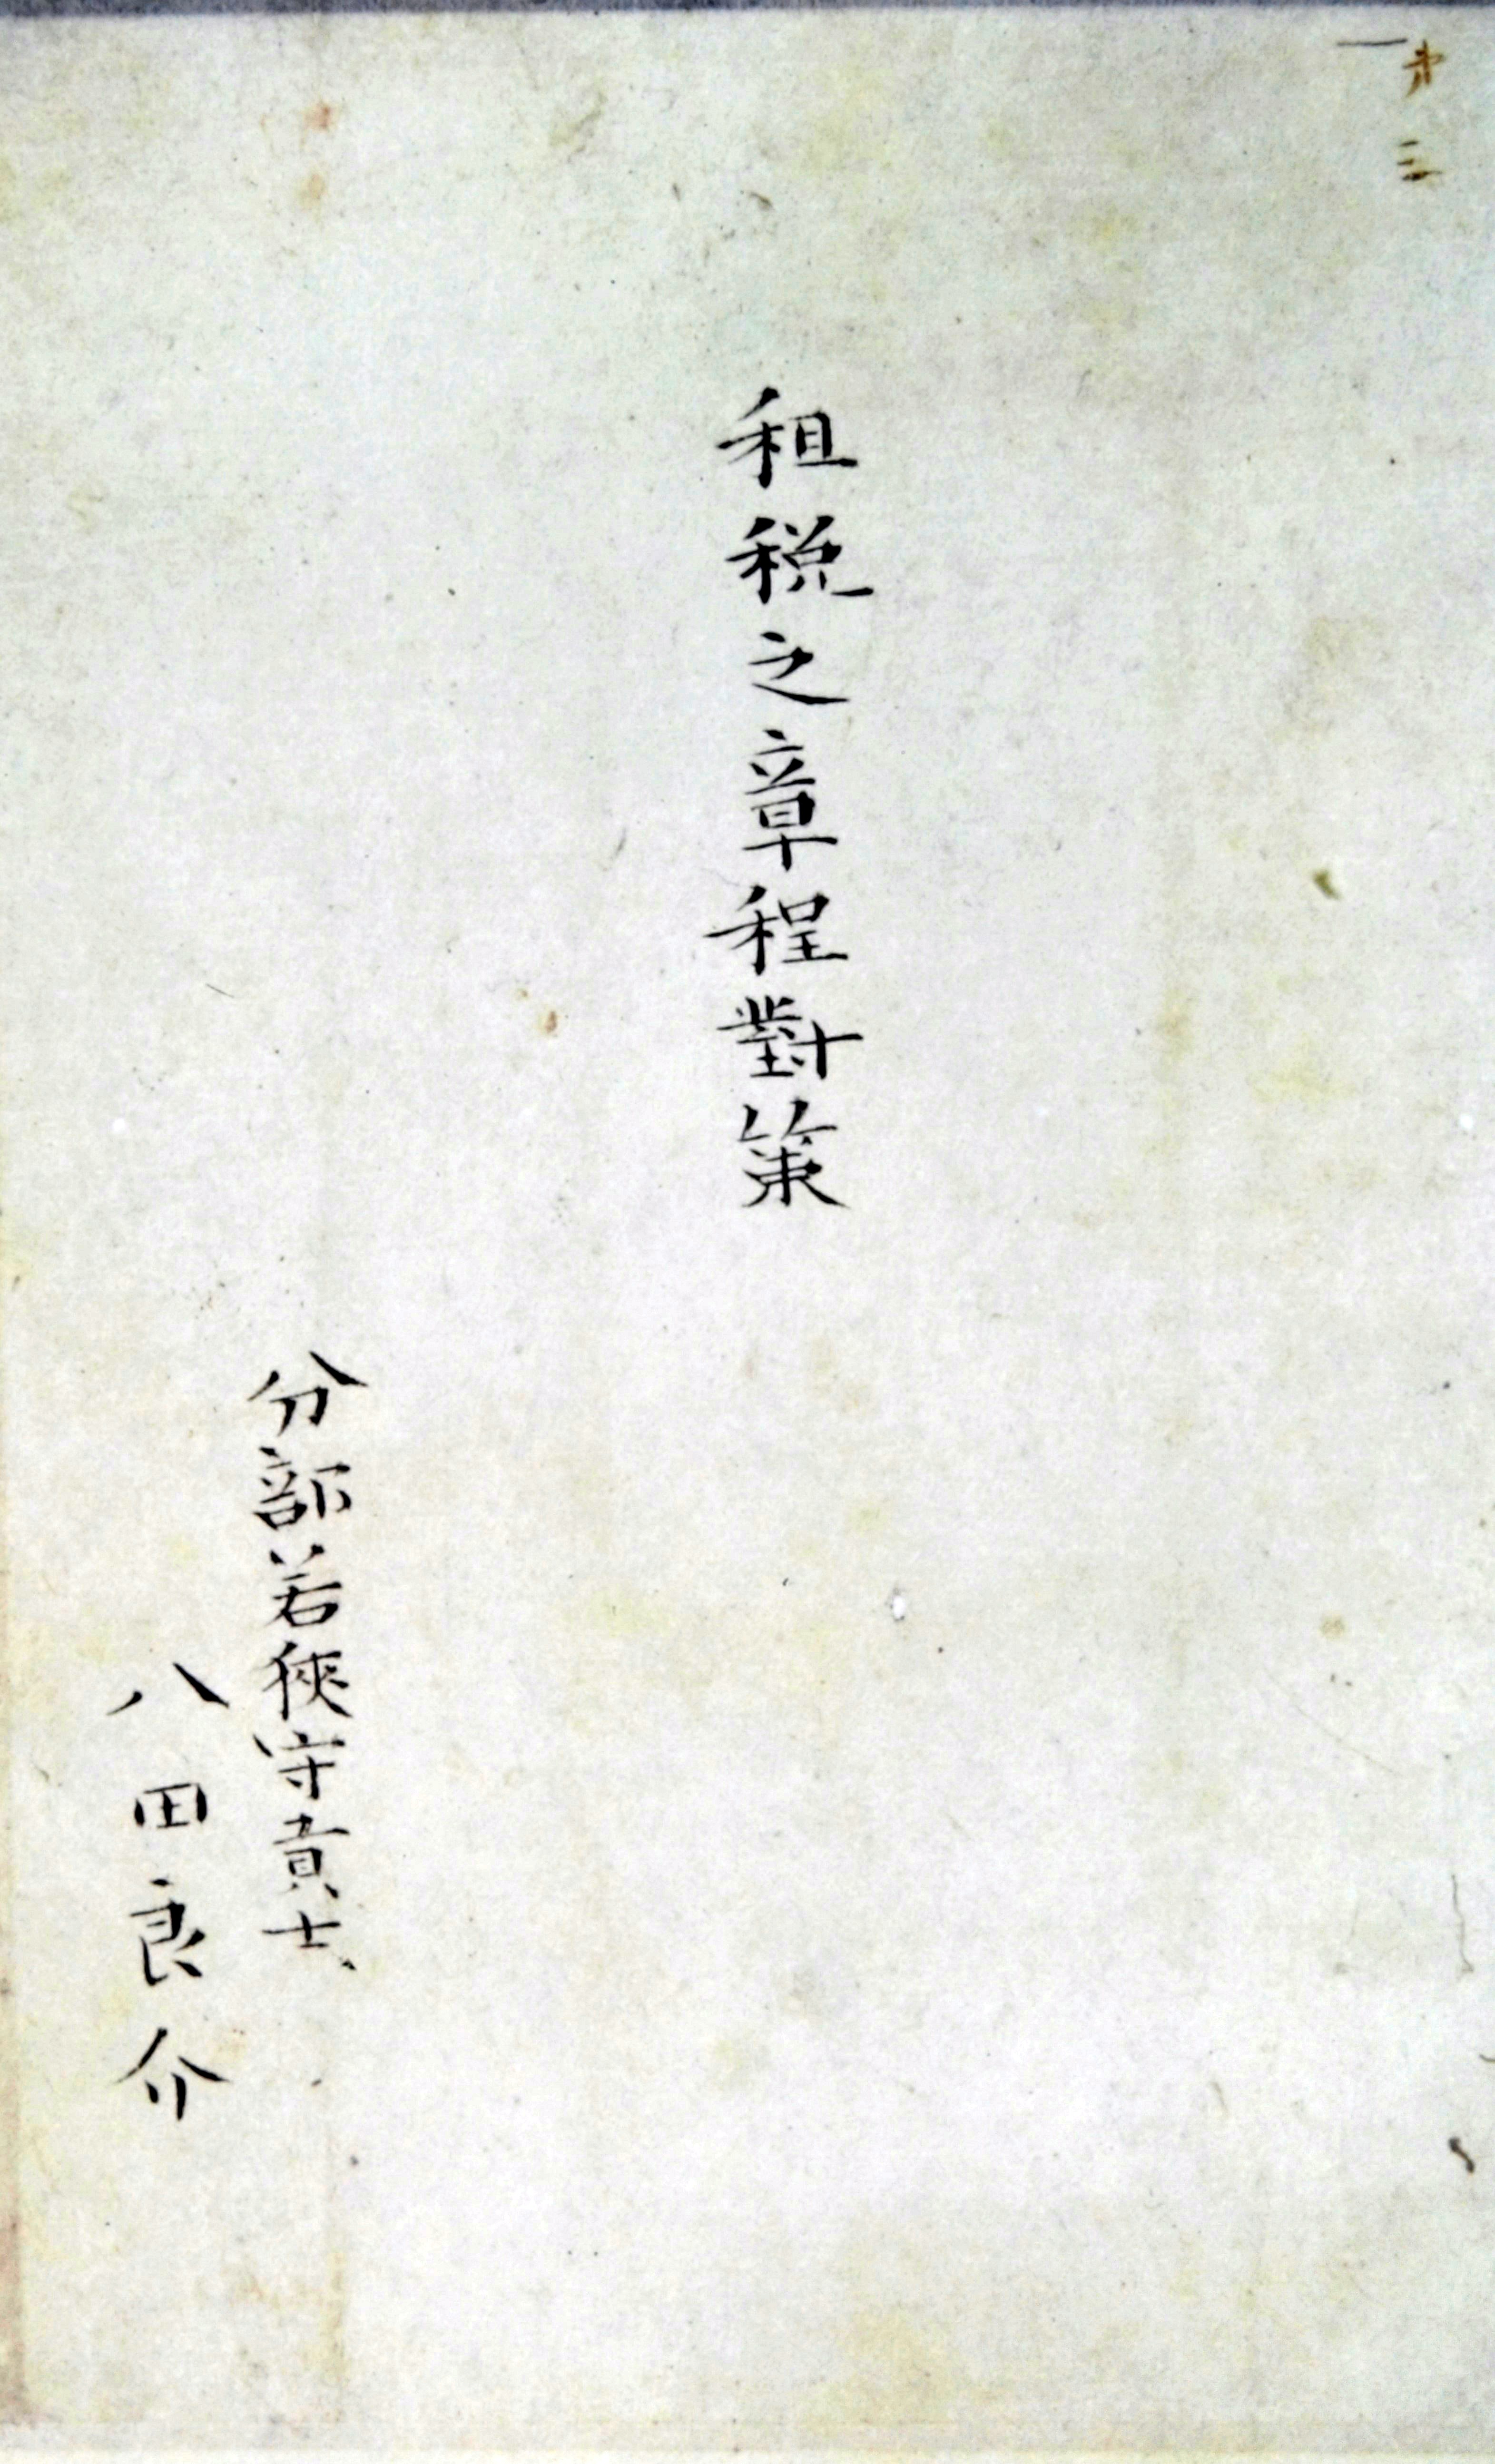 第三
租税之章程對策
分部若狹守貢士
八田良介